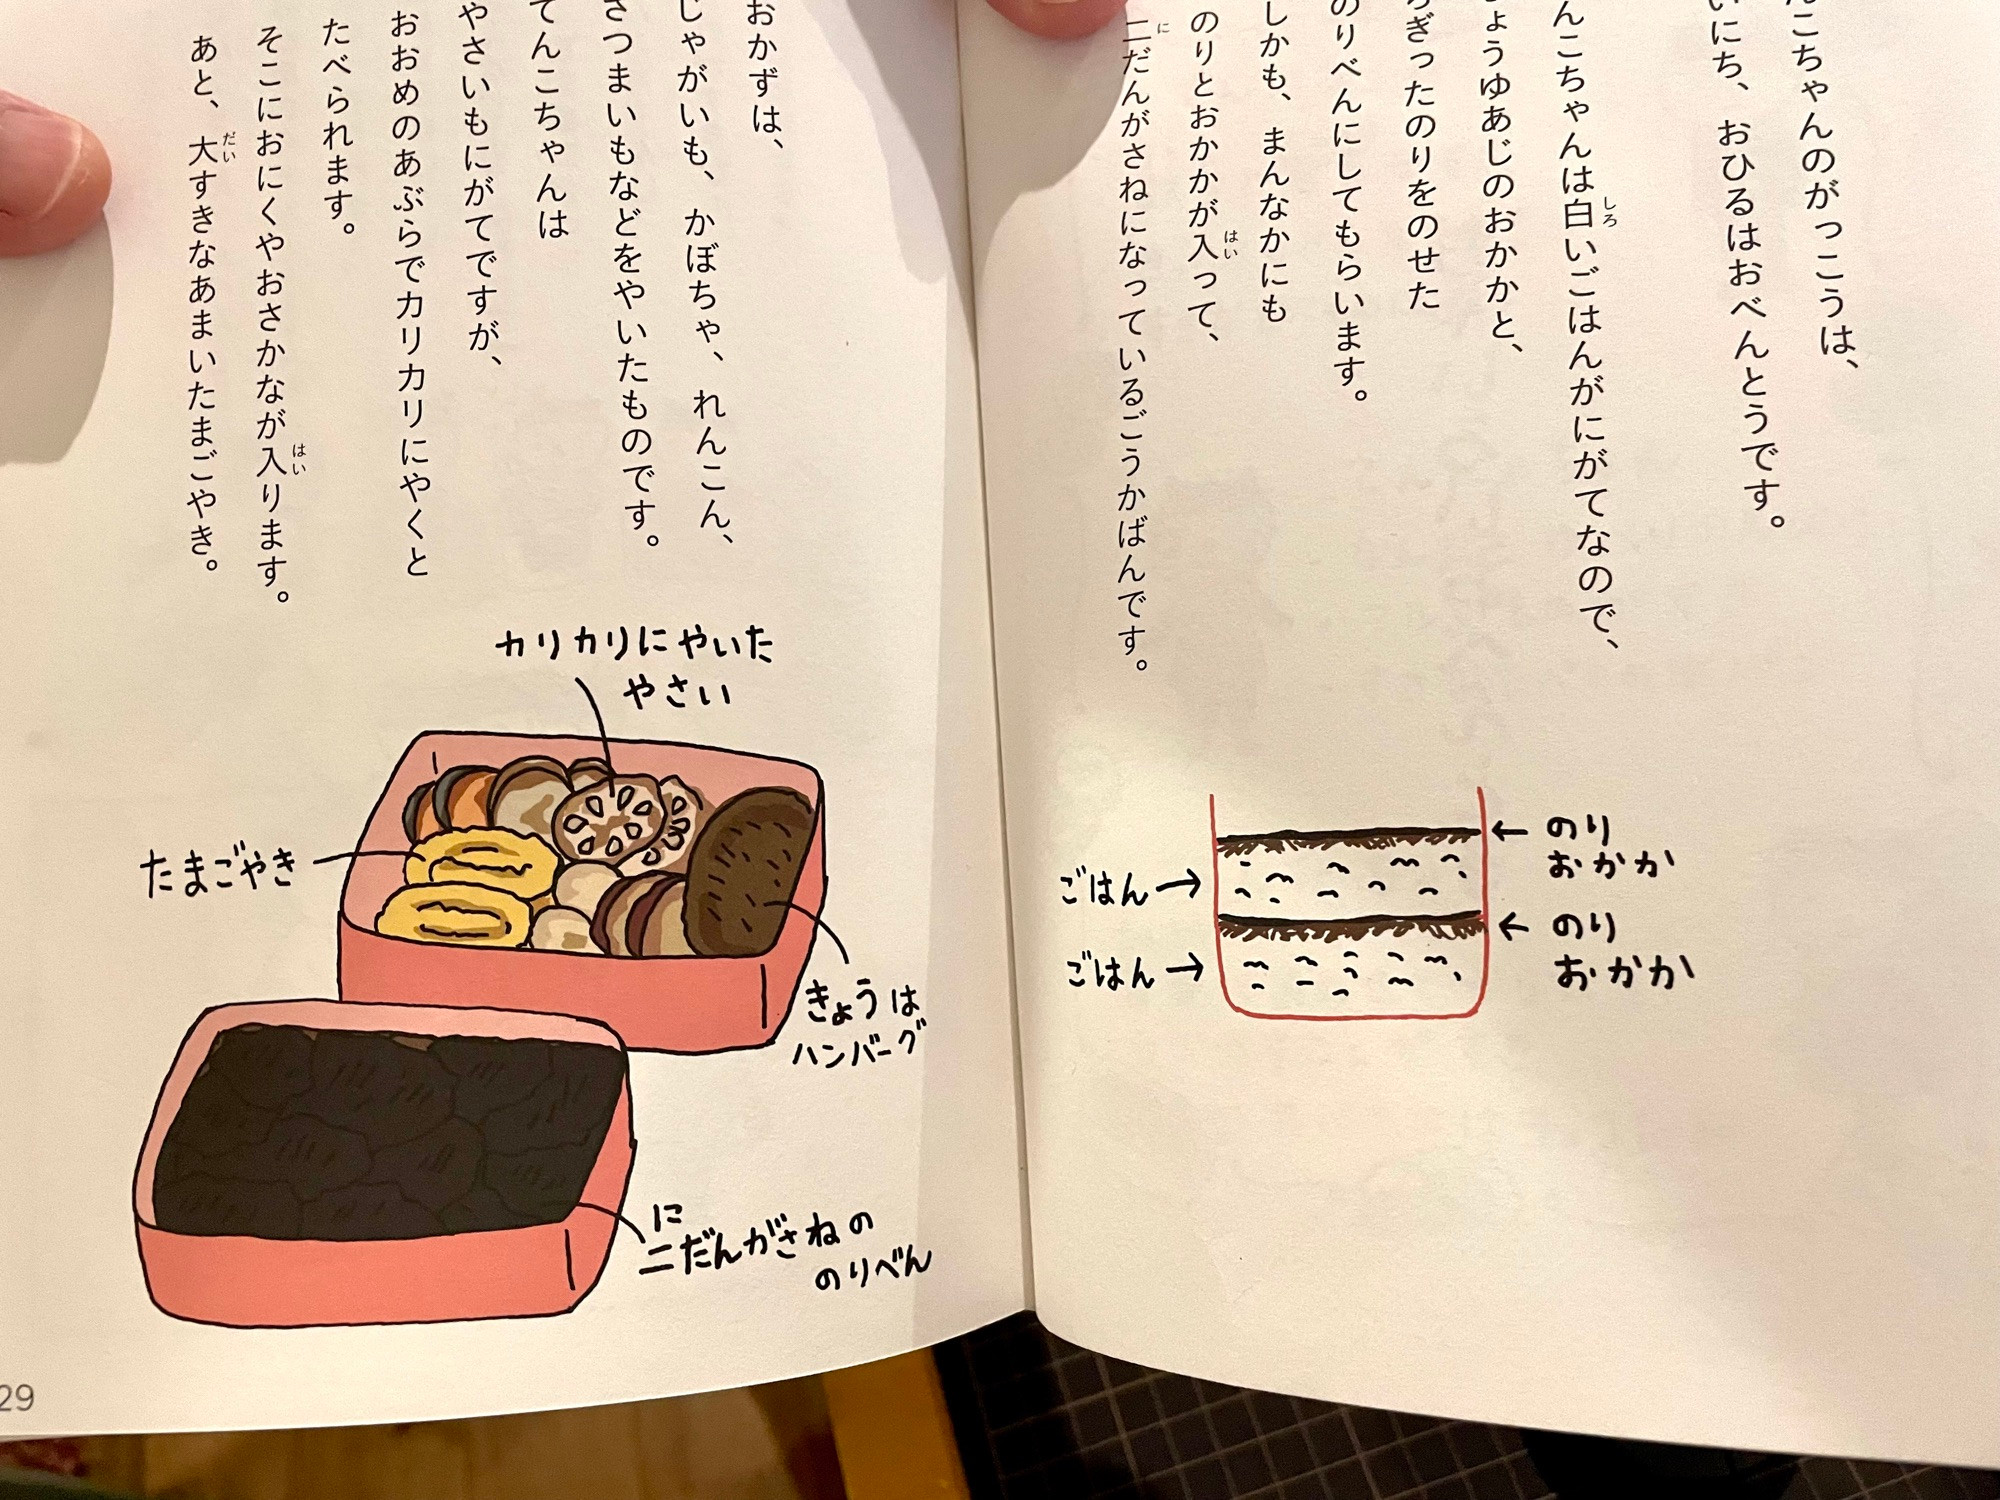 んこちゃんのがっこうは、
いにち、おひるはおべんとうです。
んこちゃんは白いごはんがにがてなので、
しろ
ょうゆあじのおかかと、
ぎったのりをのせた
のりべんにしてもらいます。
しかも、まんなかにも
のりとおかかが入って、
はい
二だんがさねになっているごうかばんです。
に
ごはん→
←のり
おかか
ごはん→
←のり
おかか
おかずは、
じゃがいも、かぼちゃ、れんこん、
さつまいもなどをやいたものです。
てんこちゃんは
やさいもにがてですが、
おおめのあぶらでカリカリにやくと
たべられます。
そこにおにくやおさかなが入ります。
はい
あと、大すきなあまいたまごやき。
だい
カリカリにやいた
やさい
たまごやき
きょうは
ハンバーグ
に
二だんがさねの
のりべん
29